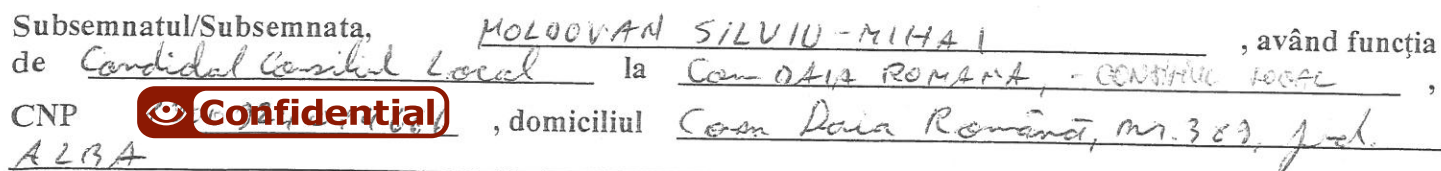 Subsemnatul/Subsemnata, MOLDOVAN SILVIU-MIHAI , având funcția
de Candidat Consiliul Local la Com DAIA ROMANA, - CONSILIUL LOCAL ,
CNP Confidential , domiciliul Com Daia Română, nr. 389, jud.
ALBA